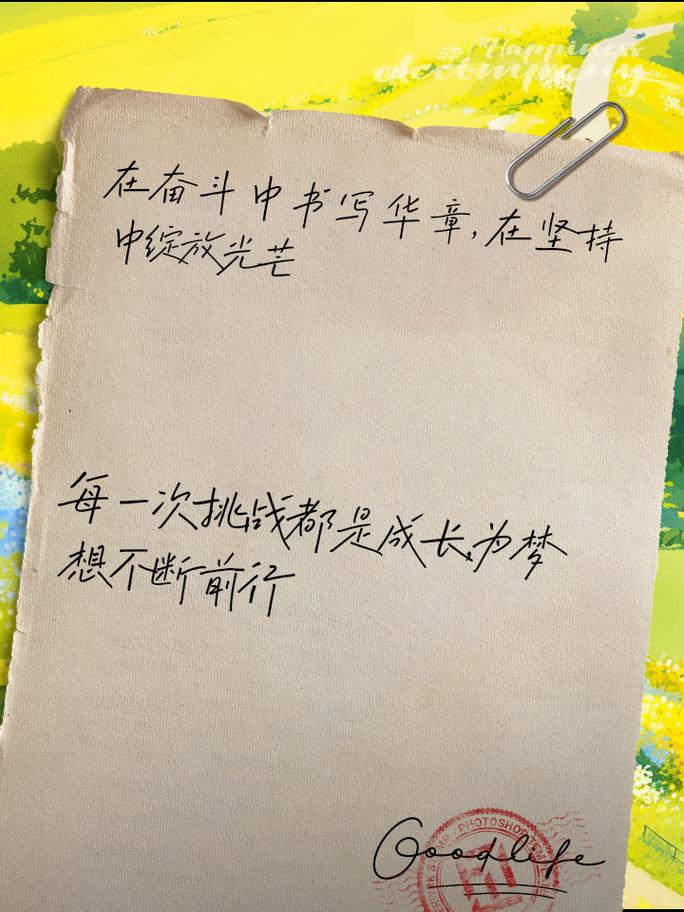 Happiness
accompany
在奋斗中书写华章,在坚持
中绽放光芒
每一次挑战都是成长,为梦
想不断前行
PHOTOSHOP
Good life